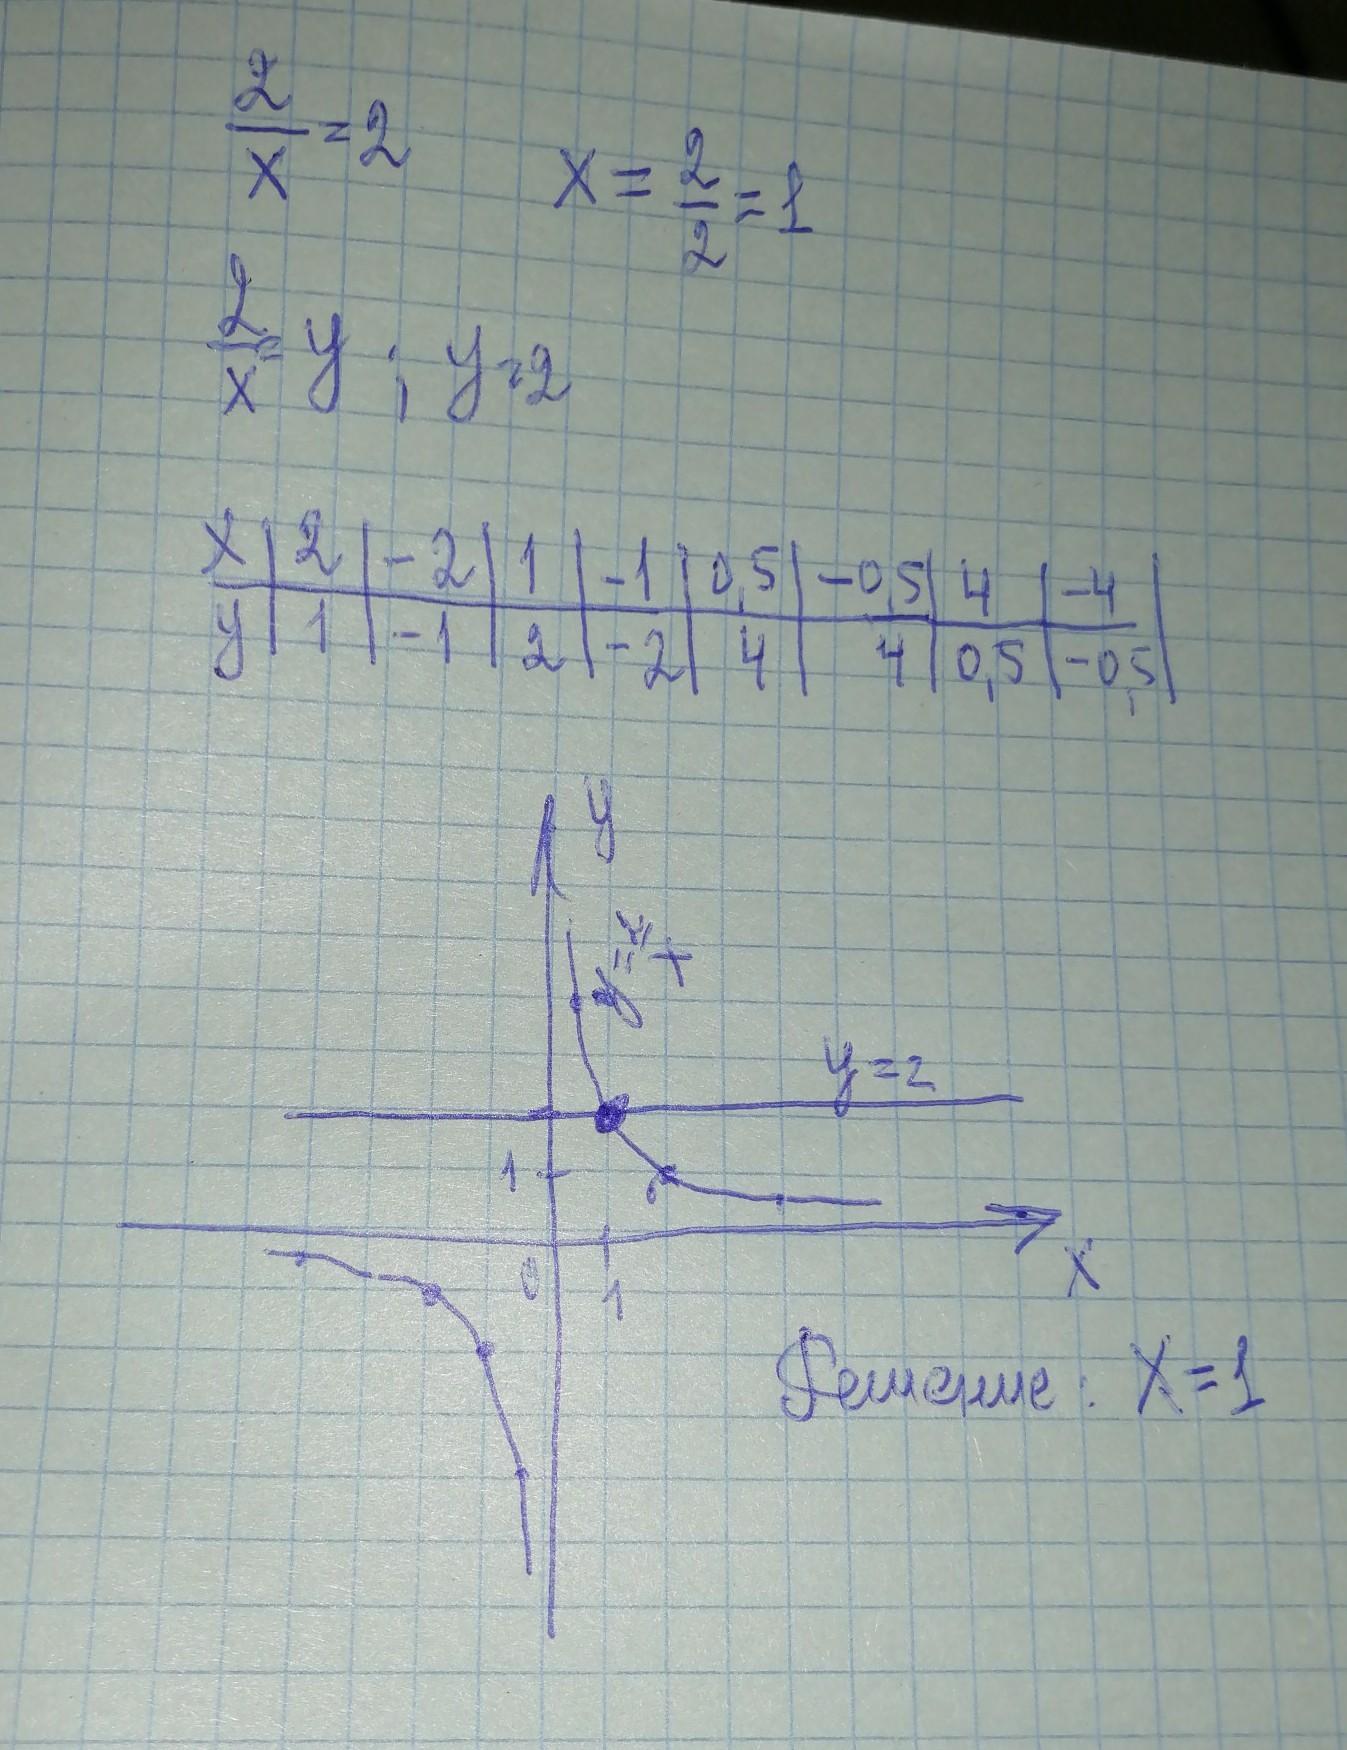 2/x = 2 x = 2/2 = 1
2/x = y ; y = 2
x | 2 | -2 | 1 | -1 | 0,5 | -0,5 | 4 | -4 |
y | 1 | -1 | 2 | -2 | 4 | 4 | 0,5 | -0,5 |
y
y = 2/x
y = 2
1
0 1 x
Решение: x = 1